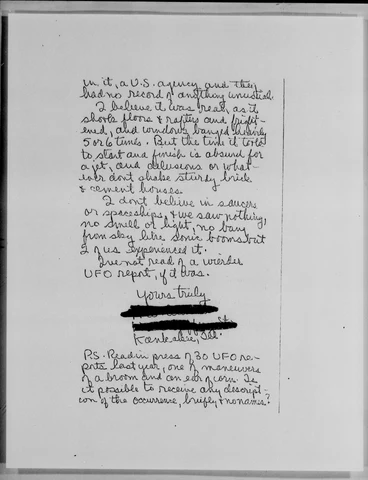 in it, a U.S. agency and they
had no record of anything unusual.
I believe it was real, as it
shook floors & rafters and fright-
ened, and windows banged
5 or 6 times. But the time it took
to start and finish is absurd for
a jet, and delusions or what-
ever dont shake sturdy brick
& cement houses.
I dont believe in saucers
or spaceships, & we saw nothing,
no smell or light, no bang
from sky like sonic booms but
2 of us experienced it.
Ive not read of a weirder
UFO report, if it was.
Yours truly
Kankakee, Ill.
P.S. Read in press of 30 UFO re-
ports last year, one of maneuvers
of a broom and an ear of corn. Is
it possible to receive any descript-
ion of the occurrence, briefly & no names?